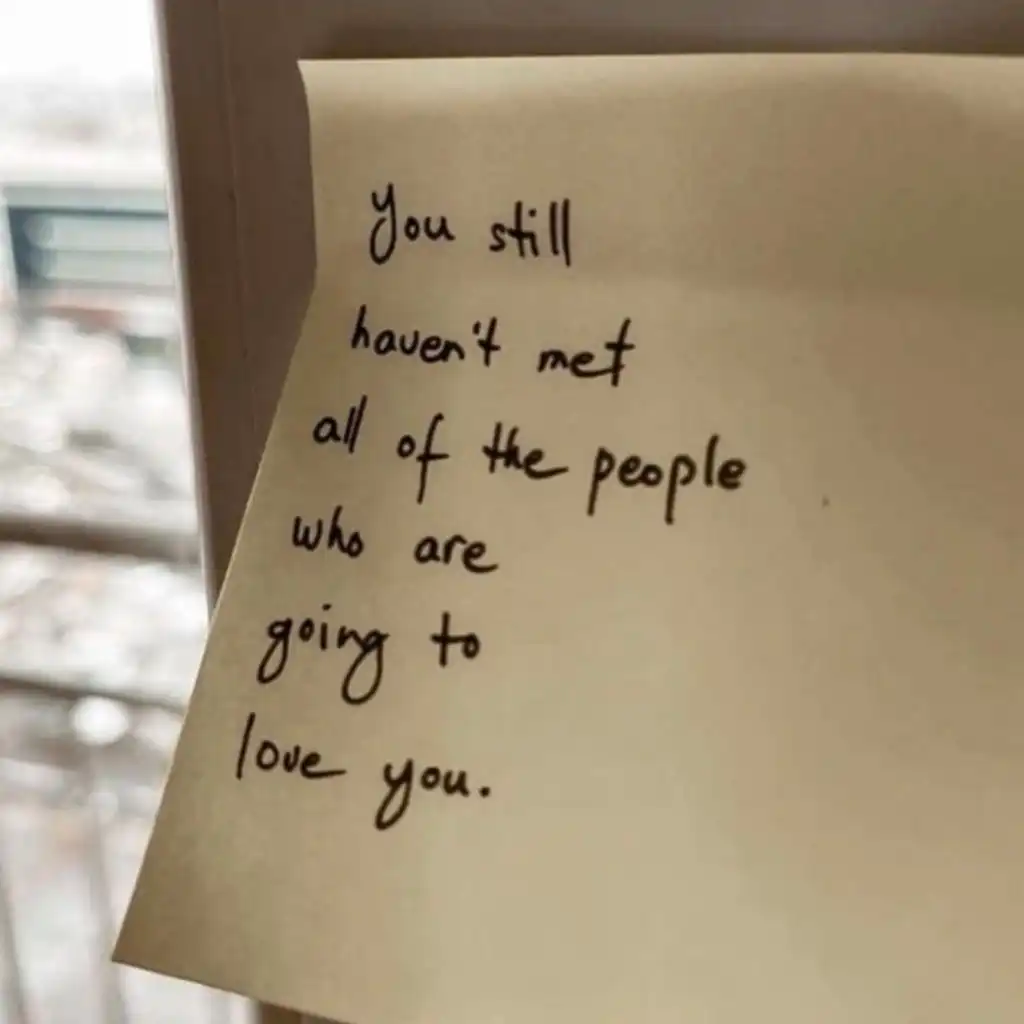 You still
haven't met
all of the people
who are
going to
love you.